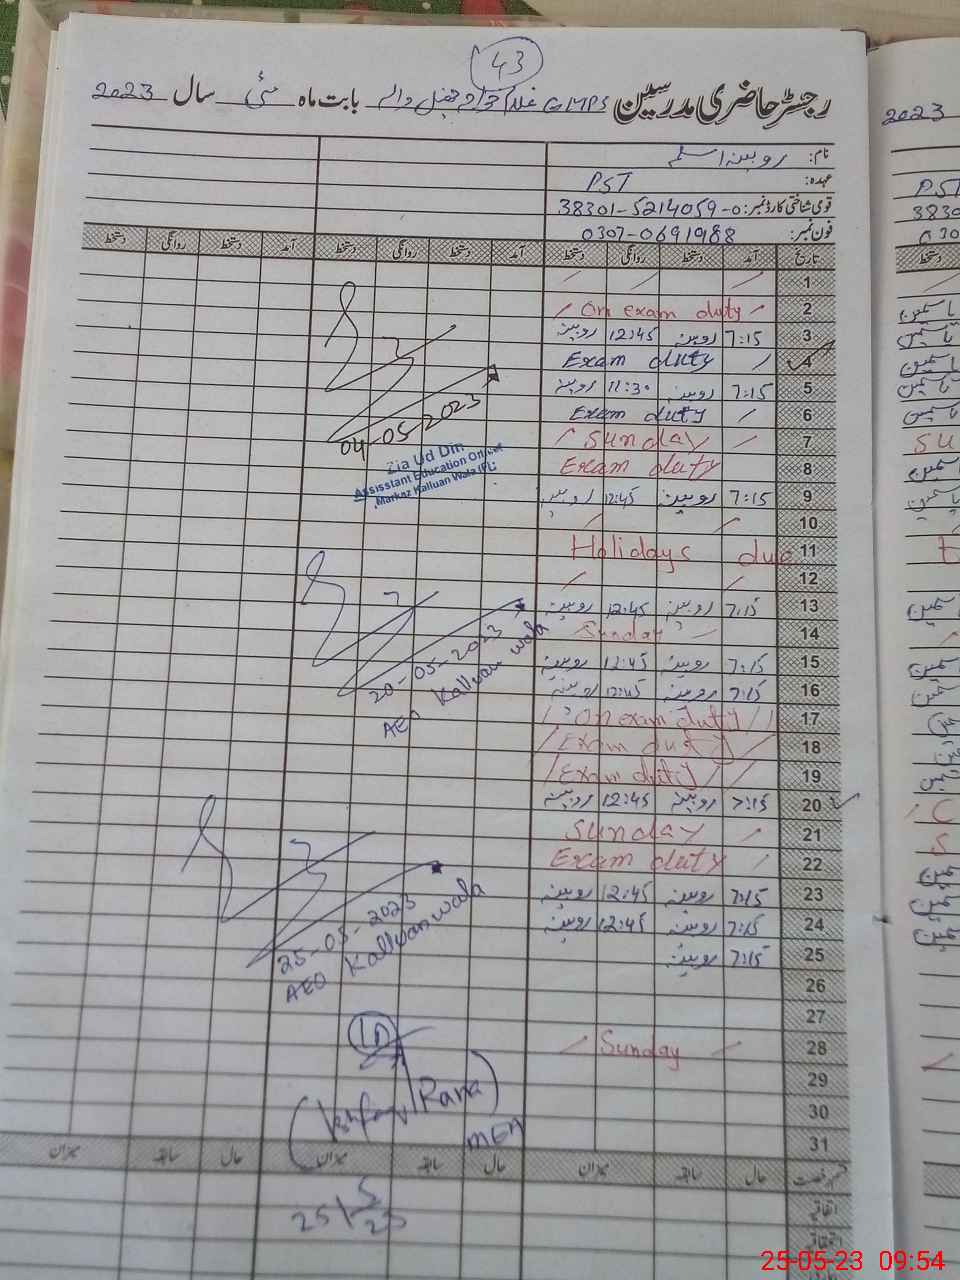 43
رجسٹر حاضری مدرسین GMPS بابت ماہ مئی سال 2023
نام: روبینہ اسلم
عہدہ: PST
قومی شناختی کارڈ نمبر: 38301-5214059-0
فون نمبر: 0307-0691988
تاریخ آمد دستخط روانگی دستخط آمد دستخط روانگی دستخط آمد دستخط روانگی دستخط
1
2 On exam duty
3 7:15 روبینہ 12:45 روبینہ
4 Exam duty
5 7:15 روبینہ 11:30 روبینہ
6 Exam duty
7 Sunday
8 Exam duty
9 7:15 روبینہ 12:45 روبینہ
10
11 Holidays due
12
13 7:15 روبینہ 12:45 روبینہ
14 Sunday
15 7:15 روبینہ 12:45 روبینہ
16 7:15 روبینہ 12:45 روبینہ
17 On exam duty
18 Exam duty
19 Exam duty
20 7:15 روبینہ 12:45 روبینہ
21 Sunday
22 Exam duty
23 7:15 روبینہ 12:45 روبینہ
24 7:15 روبینہ 12:45 روبینہ
25 7:15 روبینہ
26
27
28 Sunday
29
30
31
04-05-2023
Zia Ud Din
Assisstant Education Officer
Markaz Kalluan Wala (PL)
20-05-2023
AEO Kalluan wala
25-05-2023
AEO Kalluan wala
Rana
MEA
حال سابقہ میزان حال سابقہ میزان حال سابقہ میزان
اتفاقیہ
25/5/23
2023
PST
25-05-23 09:54